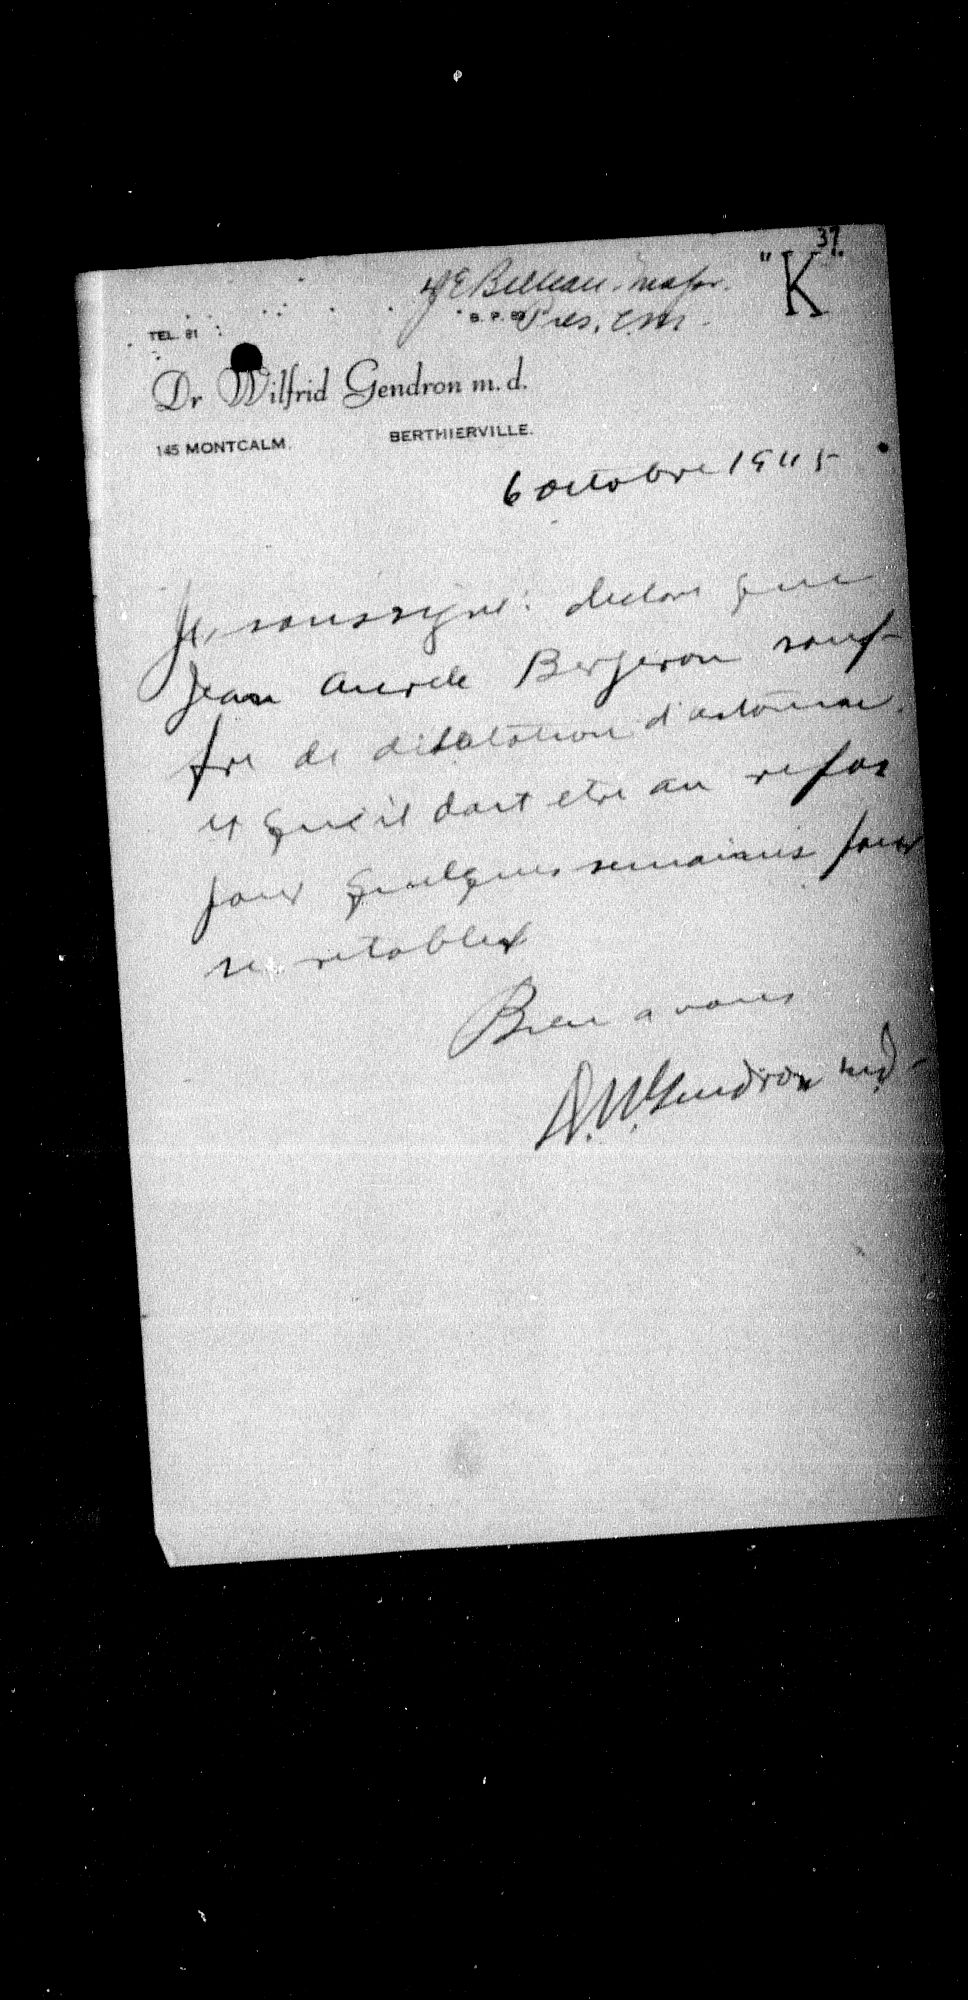 37.
"K"
Major.
Pres. C.M.
TEL. 81
B. P. 
Dr Wilfrid Gendron m. d.
145 MONTCALM.
BERTHIERVILLE.
6 octobre 1945
Je, soussigné: declare que
Jean Aurele Bergeron souf-
fre de dilatation d'estomac
et qu'il doit etre au repos
pour quelques semaines pour
se retablir
Bien a vous
D. W. Gendron md.